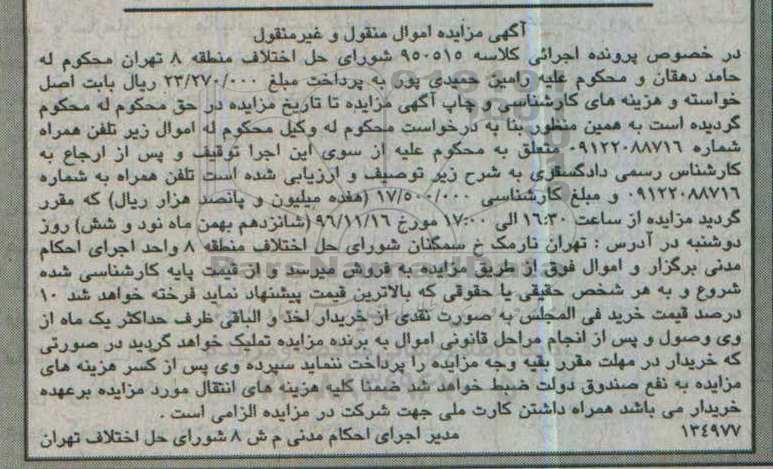 آگهی مزایده اموال منقول و غیرمنقول
در خصوص پرونده اجرائی کلاسه ۹۵۰۵۱۵ شورای حل اختلاف منطقه ۸ تهران محکوم له
حامد دهقان و محکوم علیه رامین حمیدی پور به پرداخت مبلغ ۲۳/۲۷۰/۰۰۰ ریال بابت اصل
خواسته و هزینه های کارشناسی و چاپ آگهی مزایده تا تاریخ مزایده در حق محکوم له محکوم
گردیده است به همین منظور بنا به درخواست محکوم له وکیل محکوم له اموال زیر تلفن همراه
شماره ۰۹۱۲۲۰۸۸۷۱۶ متعلق به محکوم علیه از سوی این اجرا توقیف و پس از ارجاع به
کارشناس رسمی دادگستری به شرح زیر توصیف و ارزیابی شده است تلفن همراه به شماره
۰۹۱۲۲۰۸۸۷۱۶ و مبلغ کارشناسی ۱۷/۵۰۰/۰۰۰ (هفده میلیون و پانصد هزار ریال) که مقرر
گردید مزایده از ساعت ۱۶:۳۰ الی ۱۷:۰۰ مورخ ۹۶/۱۱/۱۶ (شانزدهم بهمن ماه نود و شش) روز
دوشنبه در آدرس : تهران نارمک خ سمنگان شورای حل اختلاف منطقه ۸ واحد اجرای احکام
مدنی برگزار و اموال فوق از طریق مزایده به فروش میرسد و از قیمت پایه کارشناسی شده
شروع و به هر شخص حقیقی یا حقوقی که بالاترین قیمت پیشنهاد نماید فرخته خواهد شد ۱۰
درصد قیمت خرید فی المجلس به صورت نقدی از خریدار اخذ و الباقی ظرف حداکثر یک ماه از
وی وصول و پس از انجام مراحل قانونی اموال به برنده مزایده تملیک خواهد گردید در صورتی
که خریدار در مهلت مقرر بقیه وجه مزایده را پرداخت ننماید سپرده وی پس از کسر هزینه های
مزایده به نفع صندوق دولت ضبط خواهد شد ضمنا کلیه هزینه های انتقال مورد مزایده برعهده
خریدار می باشد همراه داشتن کارت ملی جهت شرکت در مزایده الزامی است .
۱۳۴۹۷۷ مدیر اجرای احکام مدنی م ش ۸ شورای حل اختلاف تهران